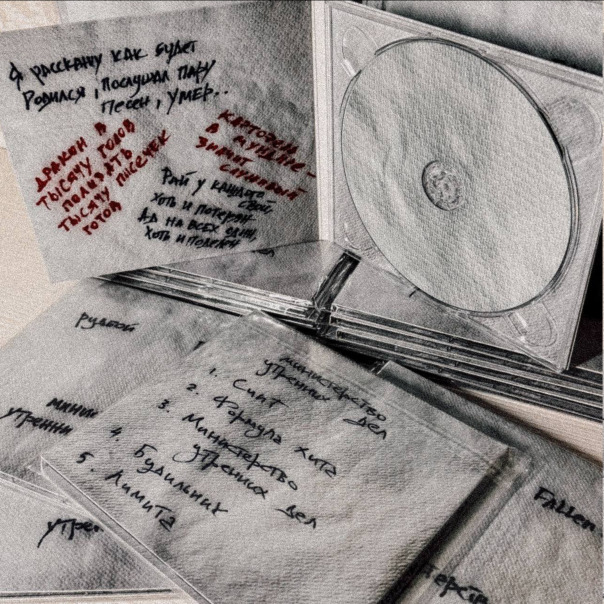 Я расскажу как будет
Родился, послушал пару
песен, умер..
Дракон в
тысячу голов
полизать
тысячу писечек
готов
Картофель
в мундире –
значит
служивый
Рай у каждого
свой
хоть и потерян
Ад на всех один,
хоть и поделен
рудбой
мини
утренни
утрен
министерство
утренних дел
1. Синт
2. Формула хита
3. Министерство
утренних дел
4. Будильник
5. Лимита
Fallen